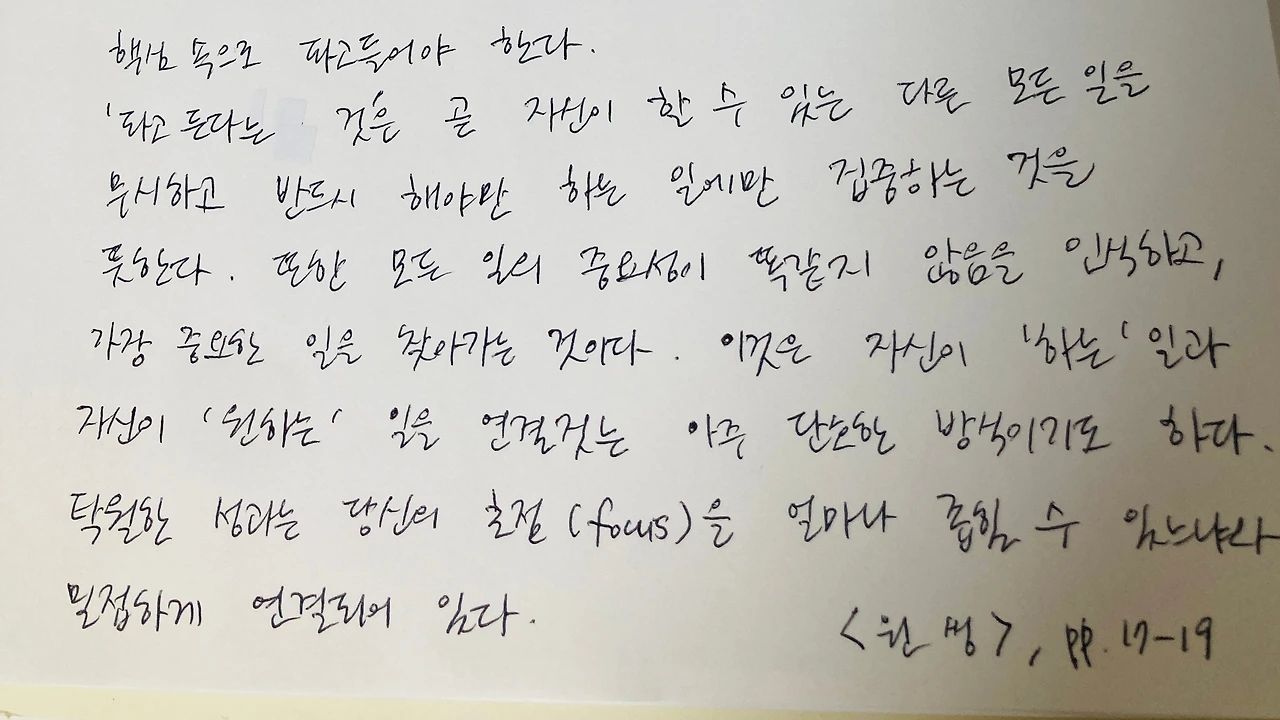 핵심 속으로 파고들어야 한다.
'파고 든다는 것은 곧 자신이 할 수 있는 다른 모든 일을
무시하고 반드시 해야만 하는 일에만 집중하는 것을
뜻한다. 또한 모든 일의 중요성이 똑같지 않음을 인식하고,
가장 중요한 일을 찾아가는 것이다. 이것은 자신이 '하는' 일과
자신이 '원하는' 일을 연결짓는 아주 단순한 방식이기도 하다.
탁월한 성과는 당신의 초점(focus)을 얼마나 좁힐 수 있느냐와
밀접하게 연결되어 있다.
<원씽>, pp. 17-19